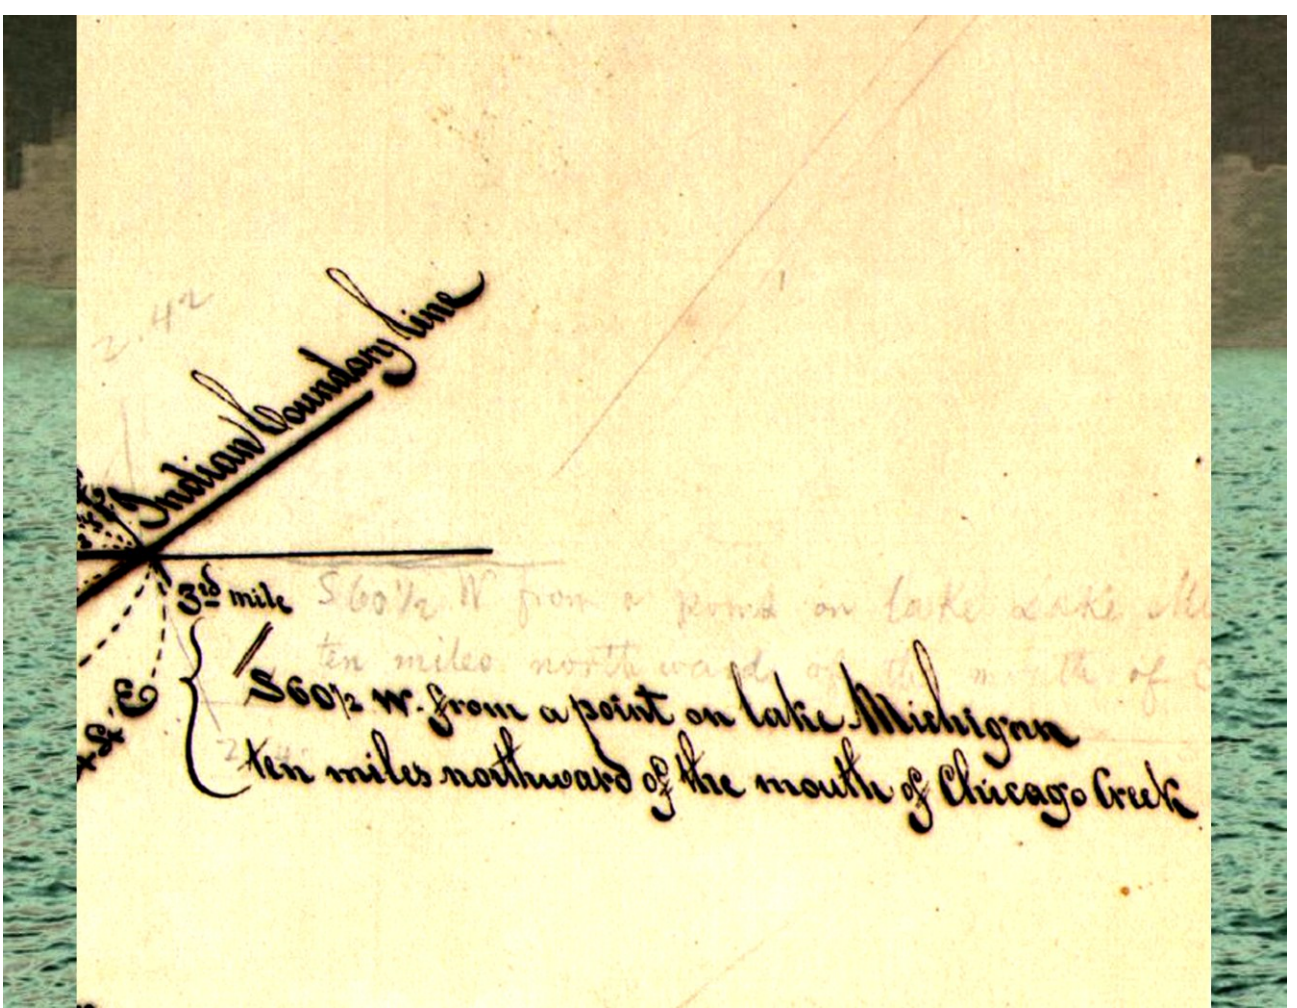 2.42
Indian boundary line
3rd mile
S 60 1/2 W from a point on lake Lake
ten miles northward of the mouth of
S 60 1/2 W. from a point on lake Michigan
ten miles northward of the mouth of Chicago Creek
E